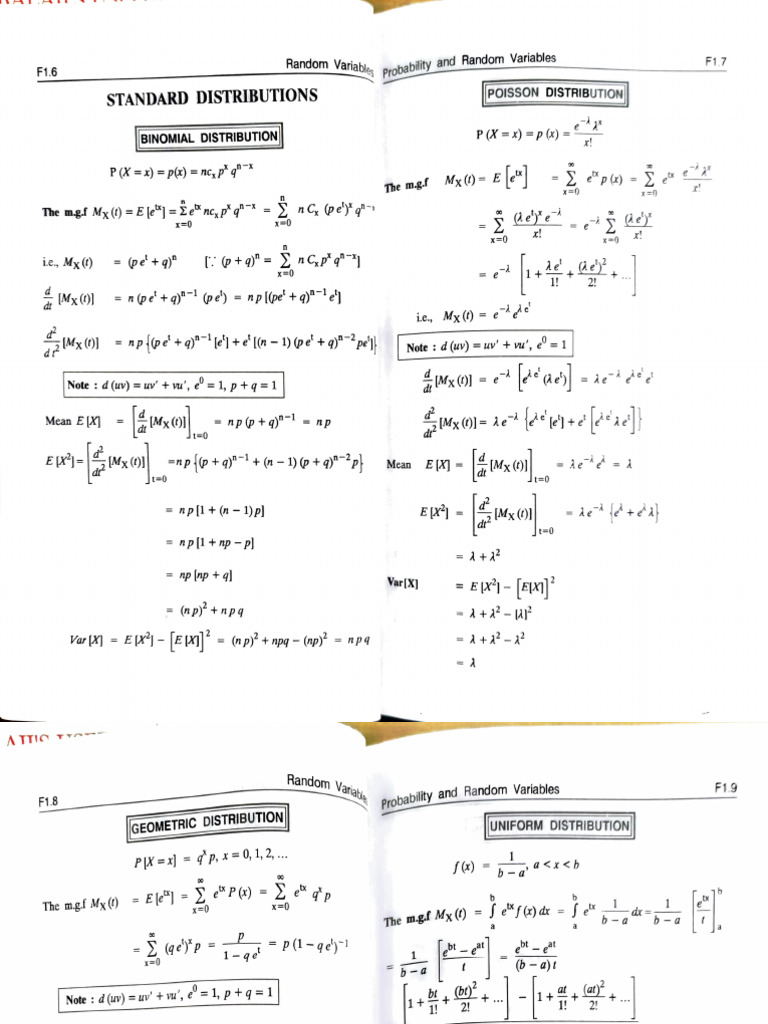 F1.6 Random Variables
STANDARD DISTRIBUTIONS
BINOMIAL DISTRIBUTION
P (X = x) = p(x) = nc_x p^x q^{n−x}
The m.g.f M_X (t) = E [e^{tx}] = Σ_{x=0}^{n} e^{tx} nc_x p^x q^{n−x} = Σ_{x=0}^{n} n C_x (p e^t)^x q^{n−x}
i.e., M_X (t) = (p e^t + q)^n [∵ (p + q)^n = Σ_{x=0}^{n} n C_x p^x q^{n−x}]
d/dt [M_X (t)] = n (p e^t + q)^{n−1} (p e^t) = n p [(pe^t + q)^{n−1} e^t]
d²/dt² [M_X (t)] = n p {(pe^t + q)^{n−1} [e^t] + e^t [(n − 1) (p e^t + q)^{n−2} pe^t]}
Note : d (uv) = uv' + vu', e^0 = 1, p + q = 1
Mean E [X] = [d/dt [M_X (t)]]_{t=0} = n p (p + q)^{n−1} = n p
E [X²] = [d²/dt² [M_X (t)]]_{t=0} = n p {(p + q)^{n−1} + (n − 1) (p + q)^{n−2} p}
= n p [1 + (n − 1) p]
= n p [1 + n p − p]
= np [np + q]
= (n p)² + n p q
Var [X] = E [X²] − [E [X]]² = (n p)² + npq − (np)² = n p q
Probability and Random Variables F1.7
POISSON DISTRIBUTION
P (X = x) = p (x) = e^{−λ} λ^x / x!
The m.g.f M_X (t) = E [e^{tx}] = Σ_{x=0}^{∞} e^{tx} p (x) = Σ_{x=0}^{∞} e^{tx} e^{−λ} λ^x / x!
= Σ_{x=0}^{∞} (λ e^t)^x e^{−λ} / x! = e^{−λ} Σ_{x=0}^{∞} (λ e^t)^x / x!
= e^{−λ} [1 + λ e^t / 1! + (λ e^t)² / 2! + ...]
i.e., M_X (t) = e^{−λ} e^{λ e^t}
Note : d (uv) = uv' + vu', e^0 = 1
d/dt [M_X (t)] = e^{−λ} [e^{λ e^t} (λ e^t)] = λ e^{−λ} e^{λ e^t} e^t
d²/dt² [M_X (t)] = λ e^{−λ} {e^{λ e^t} [e^t] + e^t [e^{λ e^t} λ e^t]}
Mean E [X] = [d/dt [M_X (t)]]_{t=0} = λ e^{−λ} e^λ = λ
E [X²] = [d²/dt² [M_X (t)]]_{t=0} = λ e^{−λ} {e^λ + e^λ λ}
= λ + λ²
Var [X] = E [X²] − [E[X]]²
= λ + λ² − [λ]²
= λ + λ² − λ²
= λ
F1.8 Random Variables
GEOMETRIC DISTRIBUTION
P [X = x] = q^x p, x = 0, 1, 2, ...
The m.g.f M_X (t) = E [e^{tx}] = Σ_{x=0}^{∞} e^{tx} P (x) = Σ_{x=0}^{∞} e^{tx} q^x p
= Σ_{x=0}^{∞} (q e^t)^x p = p / (1 − q e^t) = p (1 − q e^t)^{−1}
Note : d (uv) = uv' + vu', e^0 = 1, p + q = 1
Probability and Random Variables F1.9
UNIFORM DISTRIBUTION
f (x) = 1 / (b − a), a < x < b
The m.g.f M_X (t) = ∫_a^b e^{tx} f (x) dx = ∫_a^b e^{tx} 1/(b − a) dx = 1/(b − a) [e^{tx} / t]_a^b
= 1/(b − a) [(e^{bt} − e^{at}) / t] = (e^{bt} − e^{at}) / ((b − a) t)
[1 + bt/1! + (bt)²/2! + ...] − [1 + at/1! + (at)²/2! + ...]